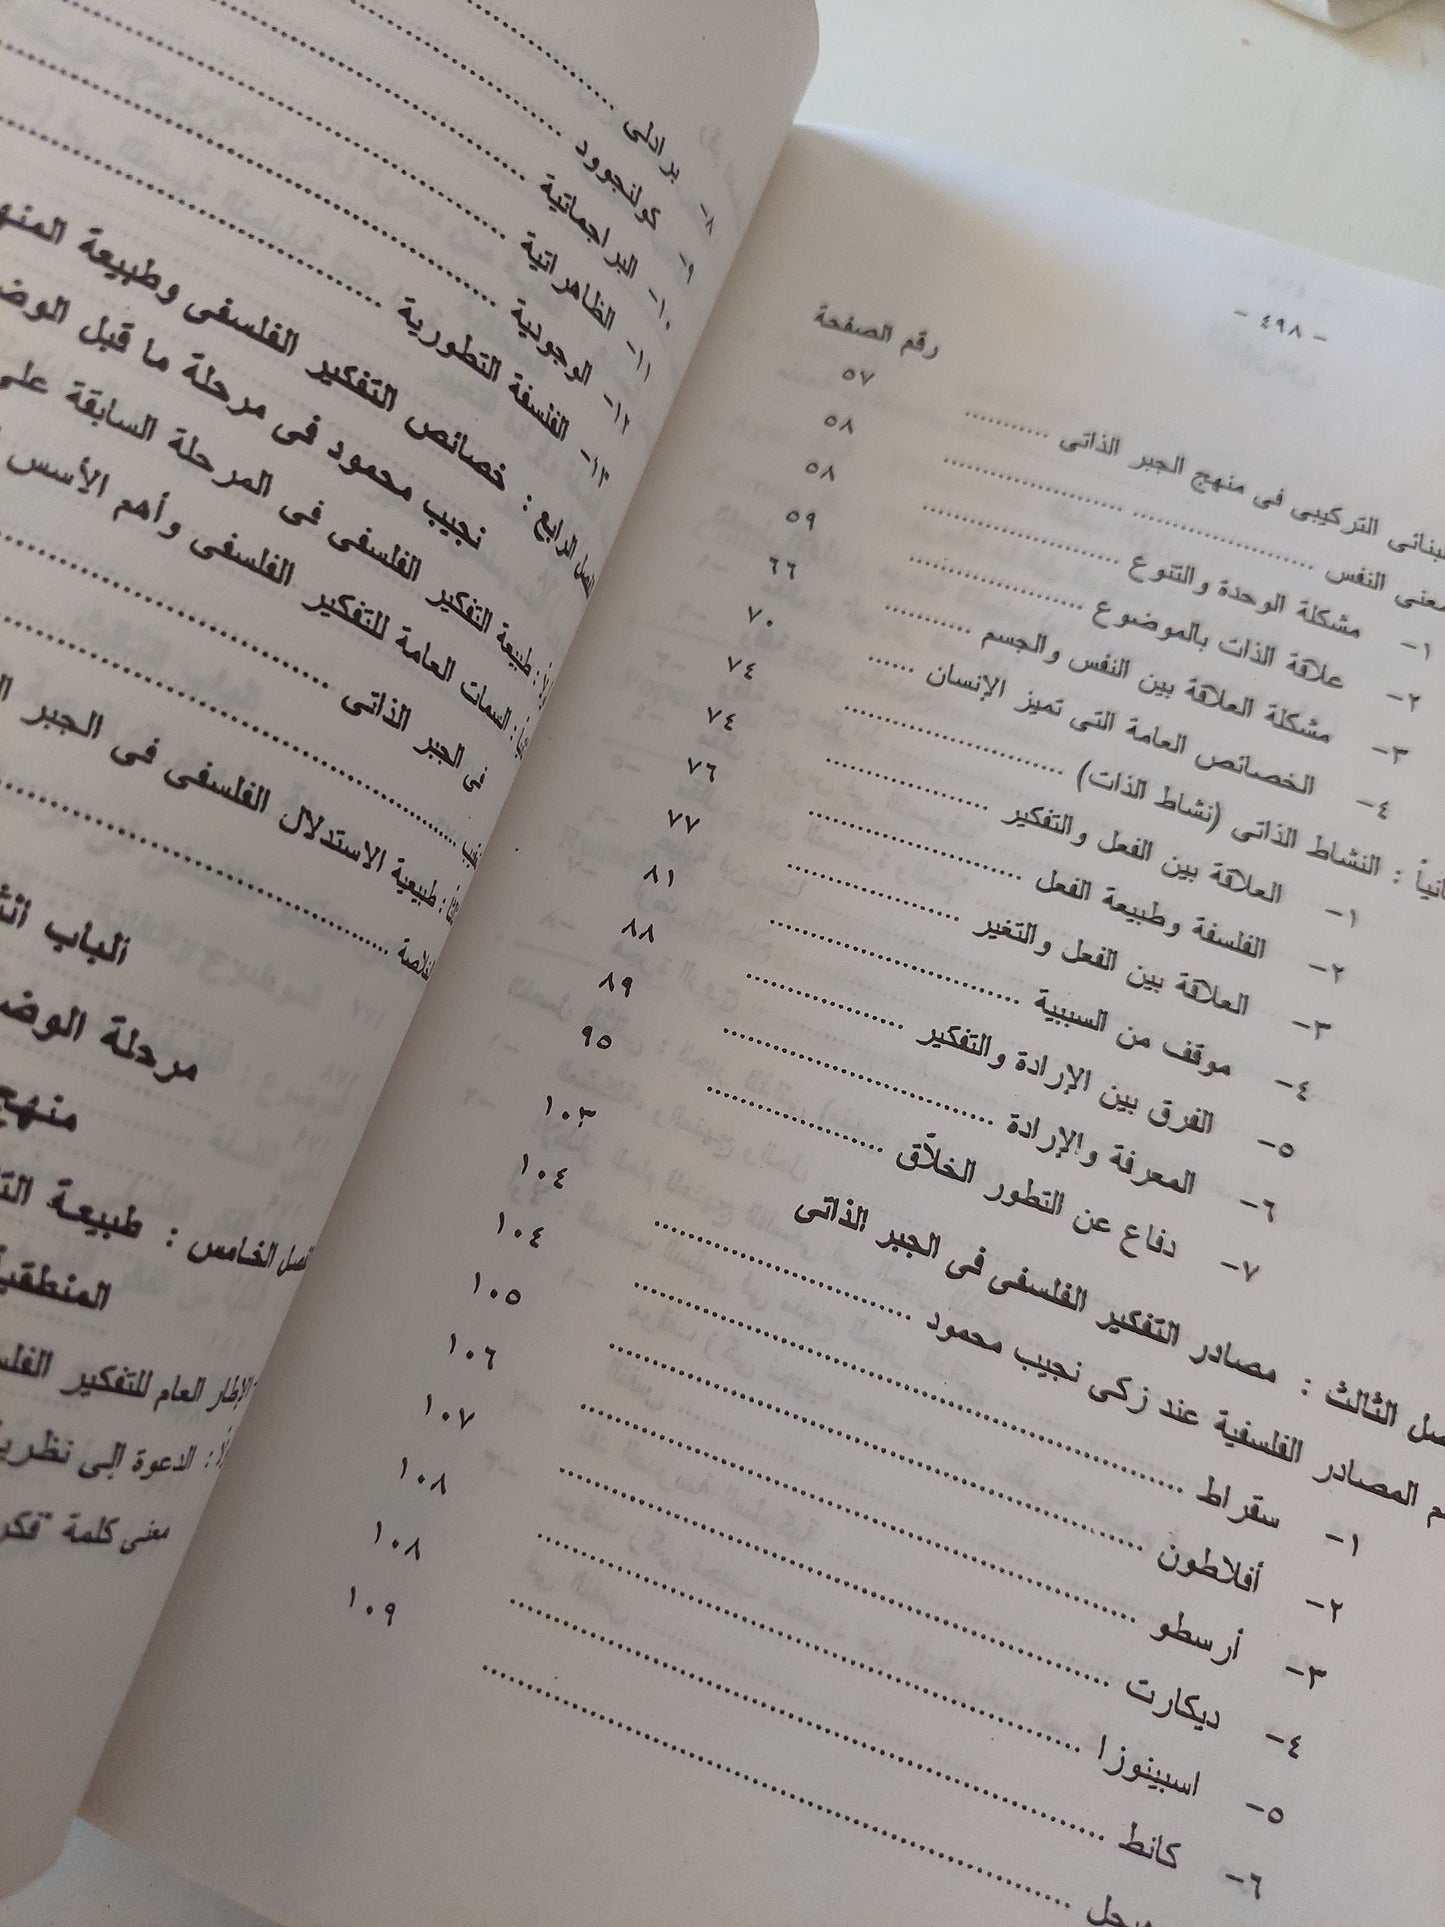 - ٤٩٨ -
رقم الصفحة
التركيبى فى منهج الجبر الذاتى .......... ٥٧
معنى النفس .......... ٥٨
١- مشكلة الوحدة والتنوع .......... ٥٨
٢- علاقة الذات بالموضوع .......... ٥٩
٣- مشكلة العلاقة بين النفس والجسم .......... ٦٦
٤- الخصائص العامة التى تميز الإنسان .......... ٧٠
: النشاط الذاتى (نشاط الذات) .......... ٧٤
١- العلاقة بين الفعل والتفكير .......... ٧٤
٢- الفلسفة وطبيعة الفعل .......... ٧٦
٣- العلاقة بين الفعل والتغير .......... ٧٧
٤- موقف من السببية .......... ٨١
٥- الفرق بين الإرادة والتفكير .......... ٨٨
٦- المعرفة والإرادة .......... ٨٩
٧- دفاع عن التطور الخلاّق .......... ٩٥
الثالث : مصادر التفكير الفلسفى فى الجبر الذاتى
المصادر الفلسفية عند زكى نجيب محمود .......... ١٠٣
١- سقراط .......... ١٠٤
٢- أفلاطون .......... ١٠٤
٣- أرسطو .......... ١٠٥
٤- ديكارت .......... ١٠٦
٥- اسبينوزا .......... ١٠٧
٦- كانط .......... ١٠٨
.......... ١٠٨
١٠٩
٨- برادلى ..........
٩- كولنجوود ..........
١٠- البراجماتية ..........
١١- الظاهراتية ..........
١٢- الوجودية ..........
١٣- الفلسفة التطورية ..........
الرابع : خصائص التفكير الفلسفى وطبيعة
نجيب محمود فى مرحلة ما قبل
: طبيعة التفكير الفلسفى فى المرحلة السابقة على
: السمات العامة للتفكير الفلسفى وأهم الأسس
فى الجبر الذاتى ..........
: طبيعية الاستدلال الفلسفى فى الجبر
..........
الباب
مرحلة
منهج
الخامس : طبيعة
الإطار العام للتفكير
: الدعوة إلى
معنى كلمة "فكر